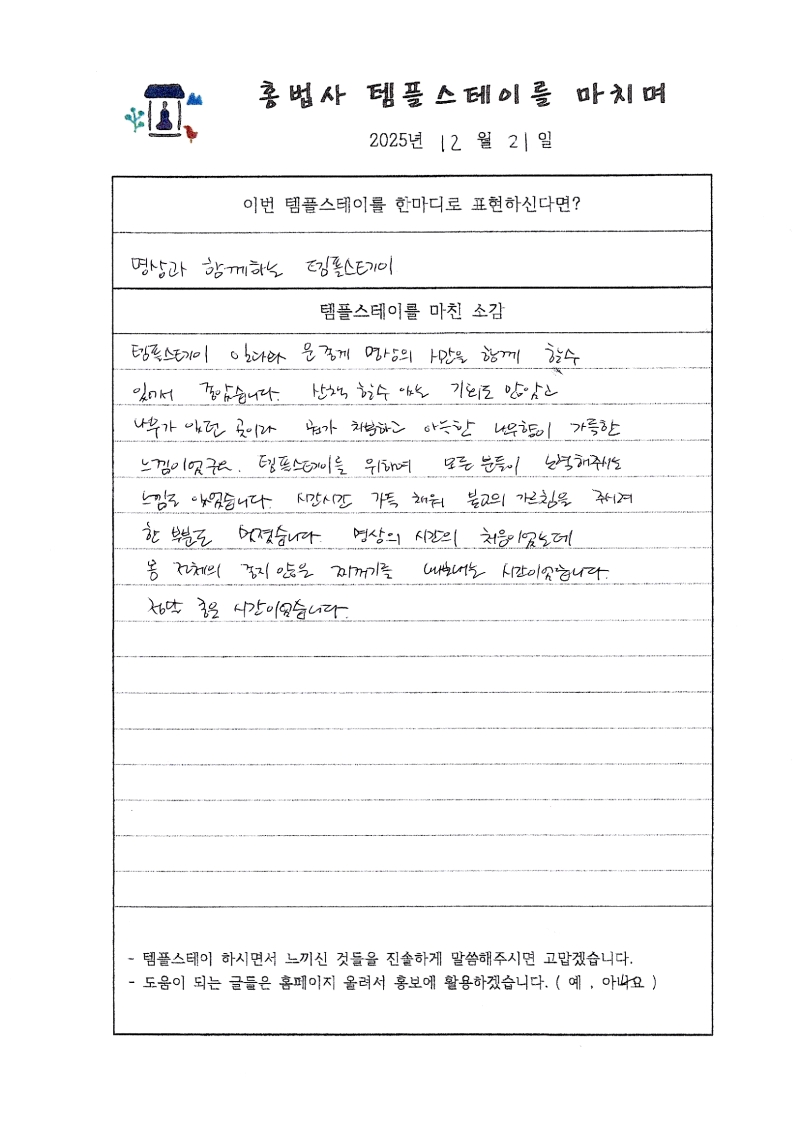 홍법사 템플스테이를 마치며
2025년 12 월 21 일
이번 템플스테이를 한마디로 표현하신다면?
명상과 함께하는 템플스테이
템플스테이를 마친 소감
템플스테이 명상의 시간을 함께 할수
있어서 좋았습니다. 산책 할수 있는 기회도 많았고
나무가 있던 곳이라 아늑한 나무향이 가득한
느낌이었구요. 템플스테이를 위하여 모든 분들이 노력해주시는
느낌도 있었습니다. 시간시간 가득 채워 불교의 가르침을 주시려
한 부분도 멋졌습니다. 명상의 시간의 처음이었는데
몸 전체의 좋지 않은 찌꺼기를 내보내는 시간이었습니다.
정말 좋은 시간이었습니다.
- 템플스테이 하시면서 느끼신 것들을 진솔하게 말씀해주시면 고맙겠습니다.
- 도움이 되는 글들은 홈페이지 올려서 홍보에 활용하겠습니다. ( 예 , 아니요 )